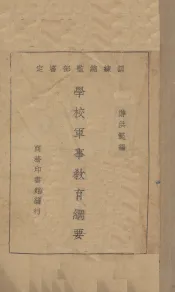 訓練總監部審定
潘洪範編
學校軍事教育綱要
商務印書館發行